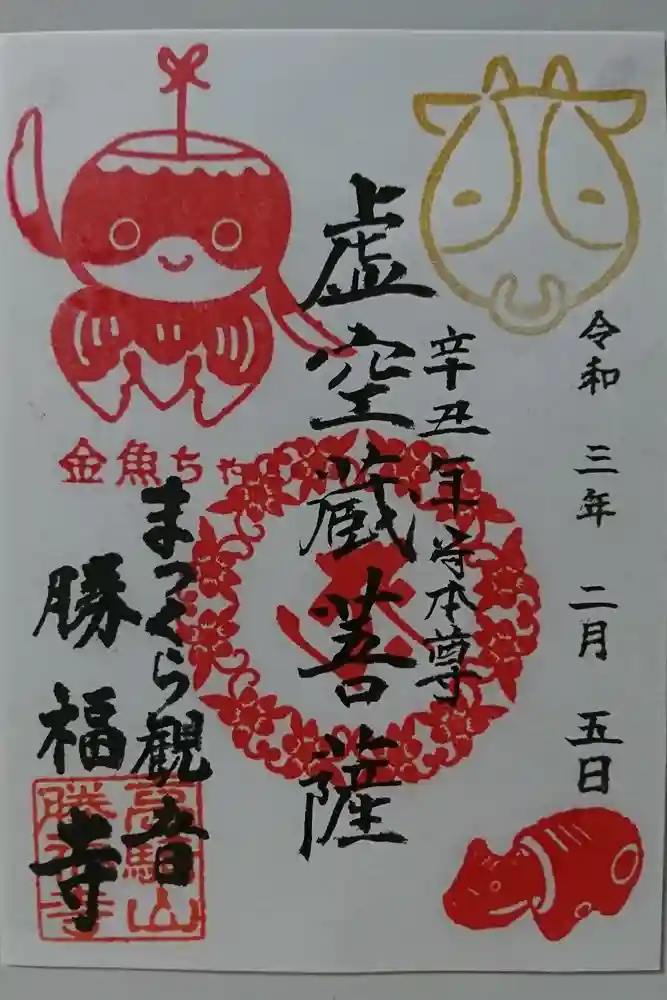 令和 三年 二月 五日
辛丑年 守本尊
虚空蔵菩薩
金魚ちゃん
まつくら観音
勝福寺
高
山
勝福寺